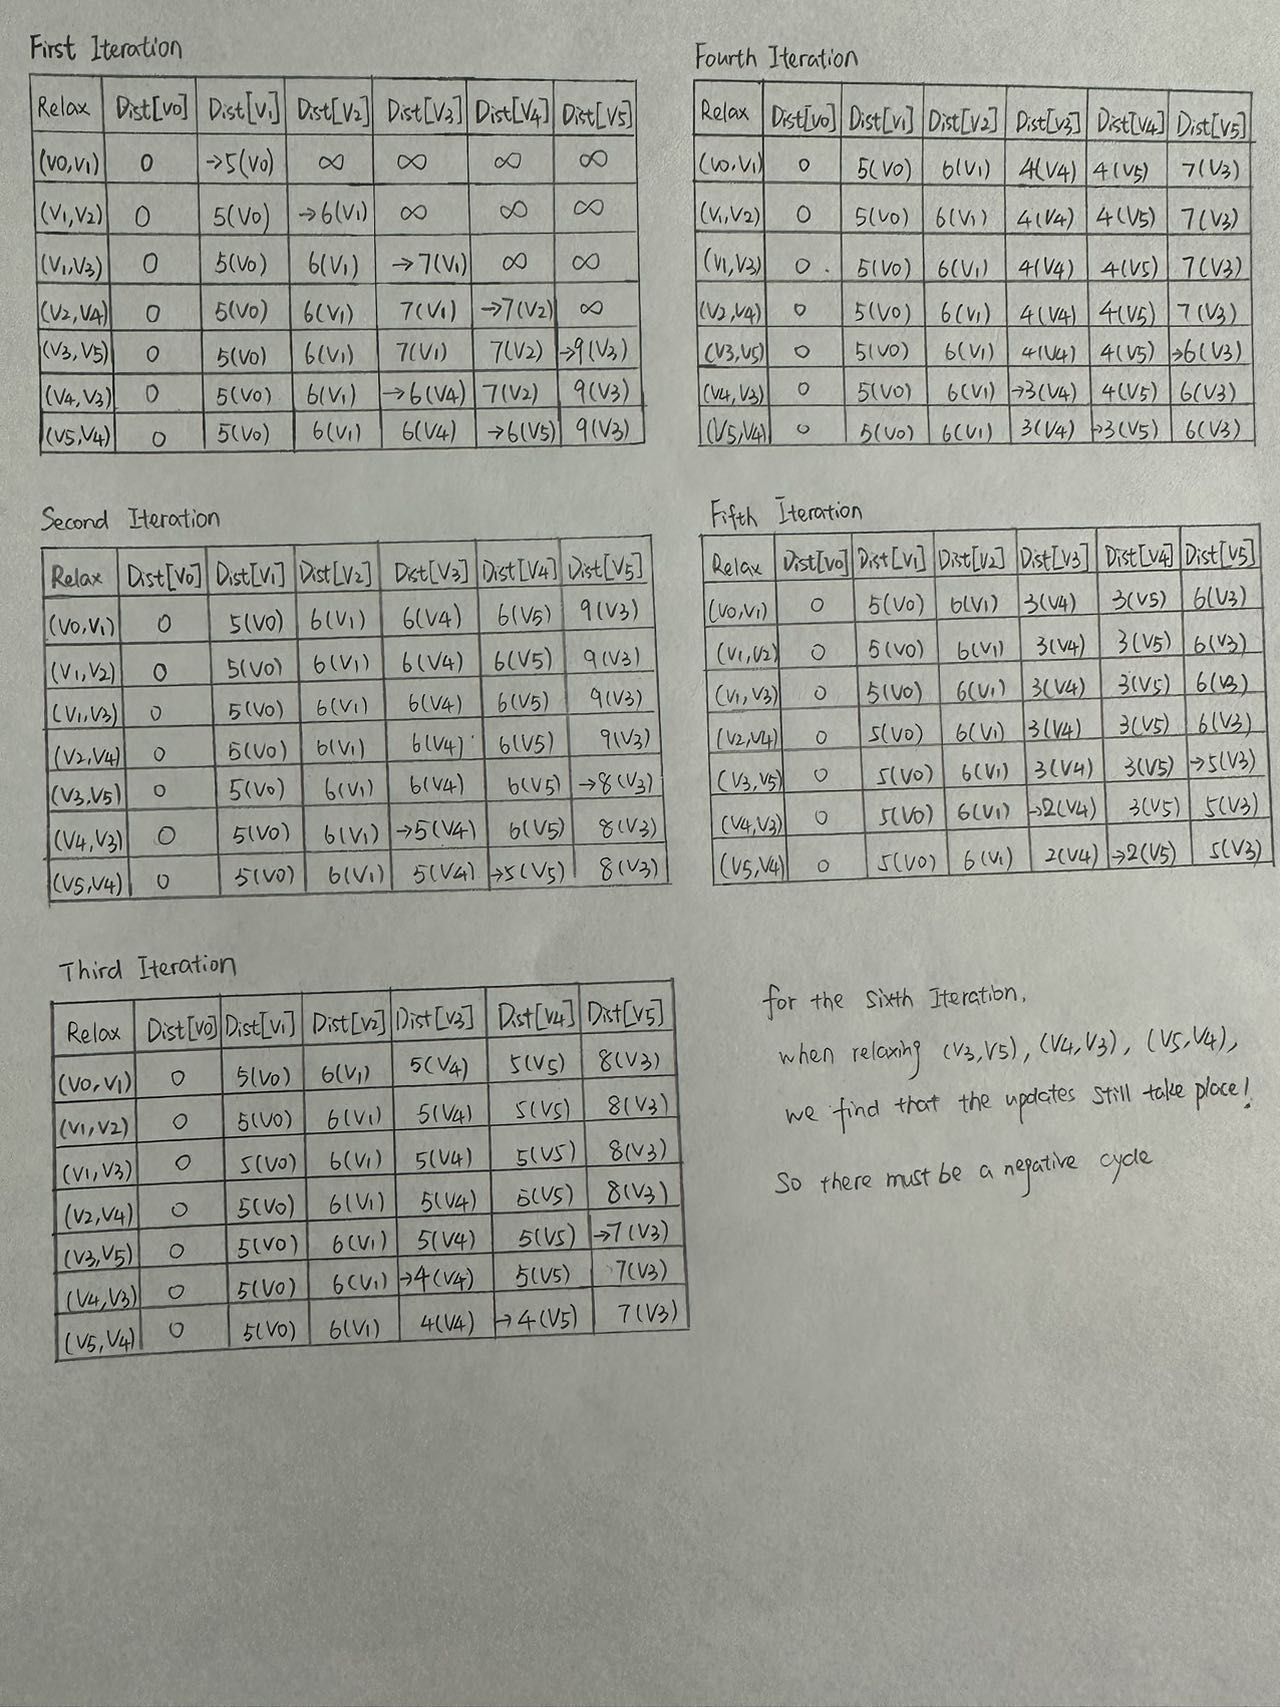 First Iteration
Relax Dist[v0] Dist[V1] Dist[V2] Dist[V3] Dist[V4] Dist[V5]
(V0,V1) 0 →5(V0) ∞ ∞ ∞ ∞
(V1,V2) 0 5(V0) →6(V1) ∞ ∞ ∞
(V1,V3) 0 5(V0) 6(V1) →7(V1) ∞ ∞
(V2,V4) 0 5(V0) 6(V1) 7(V1) →7(V2) ∞
(V3,V5) 0 5(V0) 6(V1) 7(V1) 7(V2) →9(V3)
(V4,V3) 0 5(V0) 6(V1) →6(V4) 7(V2) 9(V3)
(V5,V4) 0 5(V0) 6(V1) 6(V4) →6(V5) 9(V3)
Second Iteration
Relax Dist[V0] Dist[V1] Dist[V2] Dist[V3] Dist[V4] Dist[V5]
(V0,V1) 0 5(V0) 6(V1) 6(V4) 6(V5) 9(V3)
(V1,V2) 0 5(V0) 6(V1) 6(V4) 6(V5) 9(V3)
(V1,V3) 0 5(V0) 6(V1) 6(V4) 6(V5) 9(V3)
(V2,V4) 0 5(V0) 6(V1) 6(V4) 6(V5) 9(V3)
(V3,V5) 0 5(V0) 6(V1) 6(V4) 6(V5) →8(V3)
(V4,V3) 0 5(V0) 6(V1) →5(V4) 6(V5) 8(V3)
(V5,V4) 0 5(V0) 6(V1) 5(V4) →5(V5) 8(V3)
Third Iteration
Relax Dist[V0] Dist[V1] Dist[V2] Dist[V3] Dist[V4] Dist[V5]
(V0,V1) 0 5(V0) 6(V1) 5(V4) 5(V5) 8(V3)
(V1,V2) 0 5(V0) 6(V1) 5(V4) 5(V5) 8(V3)
(V1,V3) 0 5(V0) 6(V1) 5(V4) 5(V5) 8(V3)
(V2,V4) 0 5(V0) 6(V1) 5(V4) 5(V5) 8(V3)
(V3,V5) 0 5(V0) 6(V1) 5(V4) 5(V5) →7(V3)
(V4,V3) 0 5(V0) 6(V1) →4(V4) 5(V5) 7(V3)
(V5,V4) 0 5(V0) 6(V1) 4(V4) →4(V5) 7(V3)
Fourth Iteration
Relax Dist[V0] Dist[V1] Dist[V2] Dist[V3] Dist[V4] Dist[V5]
(V0,V1) 0 5(V0) 6(V1) 4(V4) 4(V5) 7(V3)
(V1,V2) 0 5(V0) 6(V1) 4(V4) 4(V5) 7(V3)
(V1,V3) 0 5(V0) 6(V1) 4(V4) 4(V5) 7(V3)
(V2,V4) 0 5(V0) 6(V1) 4(V4) 4(V5) 7(V3)
(V3,V5) 0 5(V0) 6(V1) 4(V4) 4(V5) →6(V3)
(V4,V3) 0 5(V0) 6(V1) →3(V4) 4(V5) 6(V3)
(V5,V4) 0 5(V0) 6(V1) 3(V4) →3(V5) 6(V3)
Fifth Iteration
Relax Dist[V0] Dist[V1] Dist[V2] Dist[V3] Dist[V4] Dist[V5]
(V0,V1) 0 5(V0) 6(V1) 3(V4) 3(V5) 6(V3)
(V1,V2) 0 5(V0) 6(V1) 3(V4) 3(V5) 6(V3)
(V1,V3) 0 5(V0) 6(V1) 3(V4) 3(V5) 6(V3)
(V2,V4) 0 5(V0) 6(V1) 3(V4) 3(V5) 6(V3)
(V3,V5) 0 5(V0) 6(V1) 3(V4) 3(V5) →5(V3)
(V4,V3) 0 5(V0) 6(V1) →2(V4) 3(V5) 5(V3)
(V5,V4) 0 5(V0) 6(V1) 2(V4) →2(V5) 5(V3)
for the sixth Iteration,
when relaxing (V3,V5), (V4,V3), (V5,V4),
we find that the updates still take place!
So there must be a negative cycle